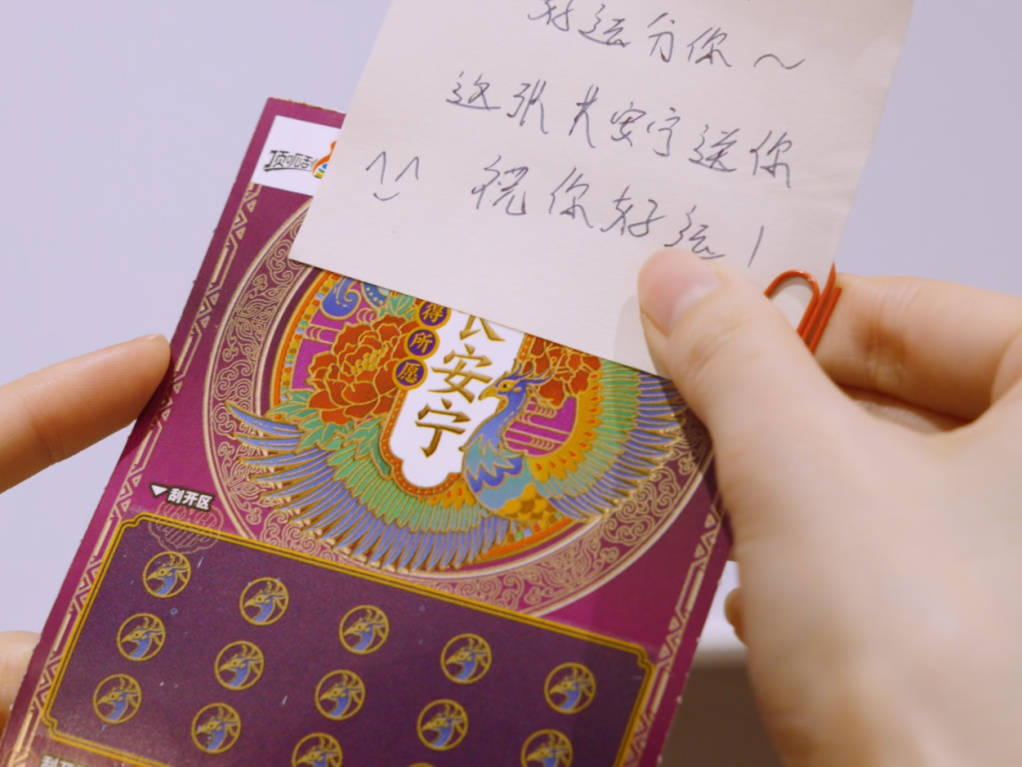 好运分你～
这张长安宁送你
^_^ 祝你好运！
顶呱刮
得所愿
长安宁
刮开区